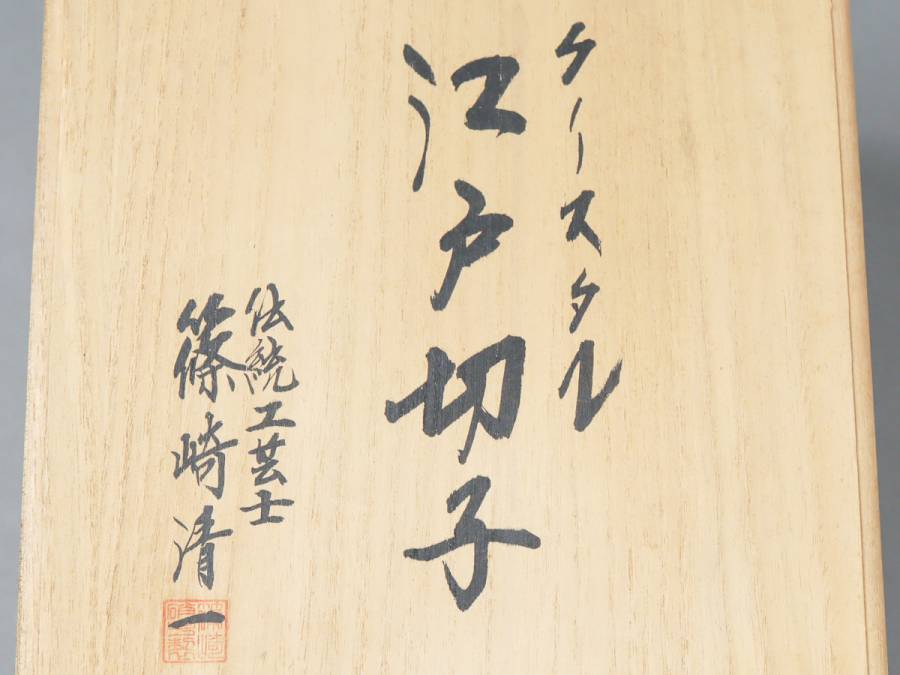 クリスタル
江戸切子
伝統工芸士
篠崎清一